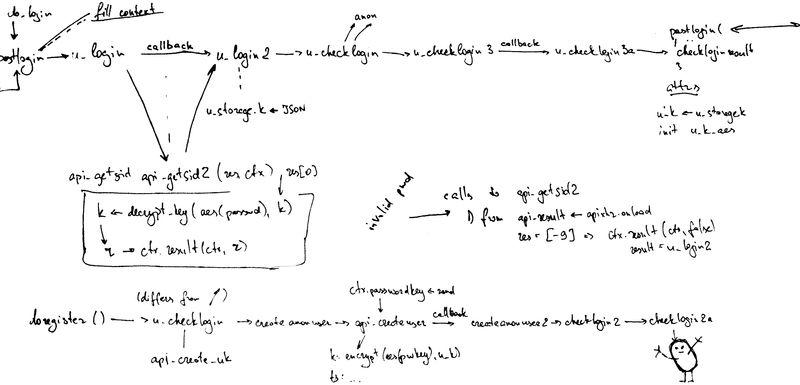 do_login
fill context
postlogin → u_login callback → u_login2 → u_checklogin → u_checklogin3 callback → u_checklogin3a → checklogin-result
anon
postlogin(
3
attrs
u_k ← u_storage.k
init u_k_aes
u_storage.k ← JSON
api_getsid api_getsid2 (res ctx) res[0]
k ← decrypt_key(aes(passwd), k)
r → ctx.result(ctx, r)
invalid pwd
calls to api_getsid2
1) from api_result ← apixhr.onload
res = [-9] ⇒ ctx.result(ctx, false)
result = u_login2
ctx.passwordkey ← rand
(differs from ↗)
doregister() → u_checklogin → createanonuser → api_createuser callback → createanonuser2 → checklogin2 → checklogin2a
api_create_uk
k: encrypt(aes(pwkey), u_k)
ts: ...